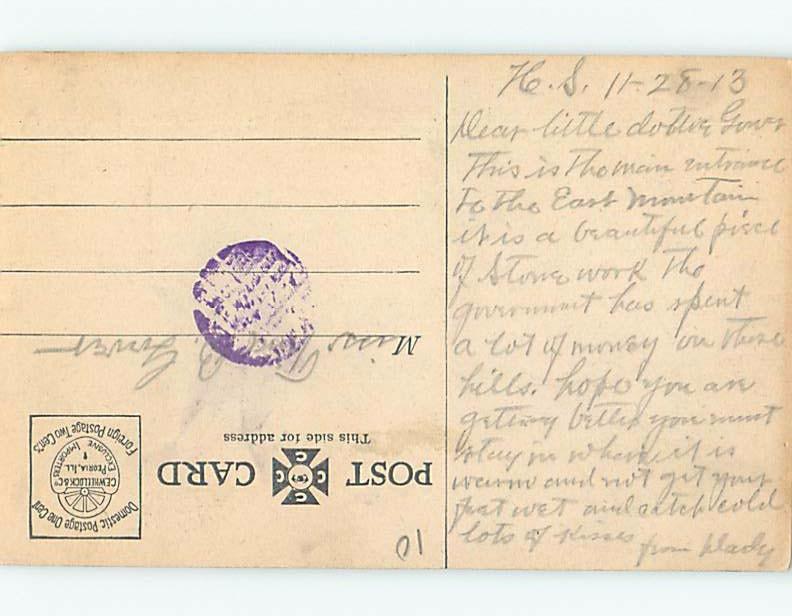 H.S. 11-28-13
Dear little
This is the main entrance
to the East Mountain
it is a beautiful piece
of Stone work the
government has spent
a lot of money in these
hills. hope you are
getting better you must
stay in when it is
warm and not get your
feat wet and catch cold
lots of kisses
from Dady
Miss
POST CARD
This side for address
Domestic Postage One Cent
Foreign Postage Two Cents
C.E. WHEELOCK & CO
PEORIA, ILL.
EXCLUSIVE IMPORTERS
10